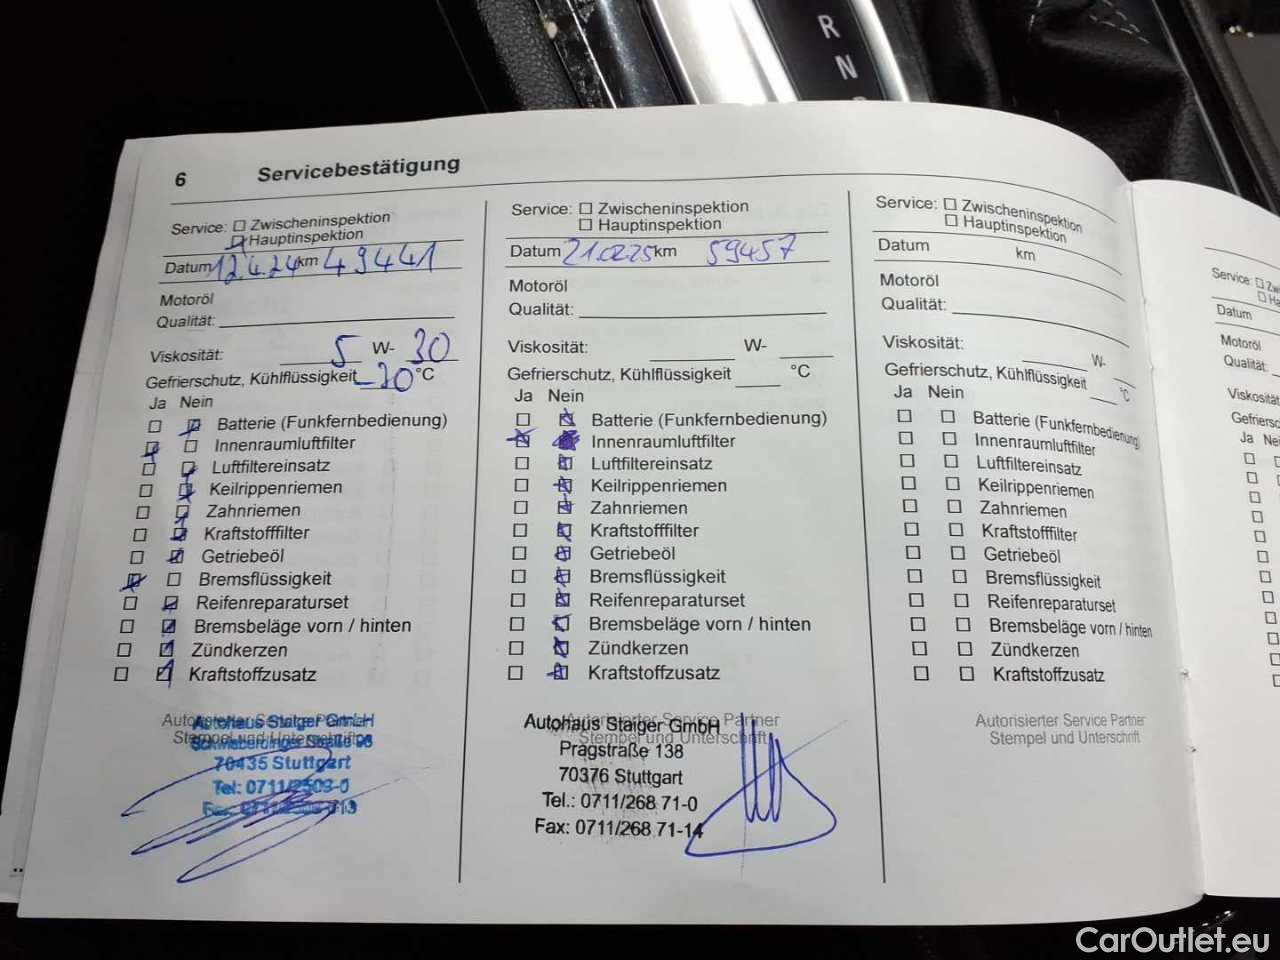 R
N
6 Servicebestätigung
Service: Zwischeninspektion
Hauptinspektion
Datum 12.4.24 km 49441
Motoröl
Qualität:
Viskosität: 5 W- 30
Gefrierschutz, Kühlflüssigkeit -20 °C
Ja Nein
Batterie (Funkfernbedienung)
Innenraumluftfilter
Luftfiltereinsatz
Keilrippenriemen
Zahnriemen
Kraftstofffilter
Getriebeöl
Bremsflüssigkeit
Reifenreparaturset
Bremsbeläge vorn / hinten
Zündkerzen
Kraftstoffzusatz
Autorisierter Service Partner
Stempel und Unterschrift
Autohaus Staiger GmbH
70435 Stuttgart
Service: Zwischeninspektion
Hauptinspektion
Datum 21.02.25 km 59457
Motoröl
Qualität:
Viskosität: W-
Gefrierschutz, Kühlflüssigkeit °C
Ja Nein
Batterie (Funkfernbedienung)
Innenraumluftfilter
Luftfiltereinsatz
Keilrippenriemen
Zahnriemen
Kraftstofffilter
Getriebeöl
Bremsflüssigkeit
Reifenreparaturset
Bremsbeläge vorn / hinten
Zündkerzen
Kraftstoffzusatz
Autorisierter Service Partner
Stempel und Unterschrift
Autohaus Staiger GmbH
Pragstraße 138
70376 Stuttgart
Tel.: 0711/268 71-0
Fax: 0711/268 71-14
Service: Zwischeninspektion
Hauptinspektion
Datum km
Motoröl
Qualität:
Viskosität: W-
Gefrierschutz, Kühlflüssigkeit °C
Ja Nein
Batterie (Funkfernbedienung)
Innenraumluftfilter
Luftfiltereinsatz
Keilrippenriemen
Zahnriemen
Kraftstofffilter
Getriebeöl
Bremsflüssigkeit
Reifenreparaturset
Bremsbeläge vorn / hinten
Zündkerzen
Kraftstoffzusatz
Autorisierter Service Partner
Stempel und Unterschrift
Service:
Datum
Motoröl
Qualität:
Ja
CarOutlet.eu